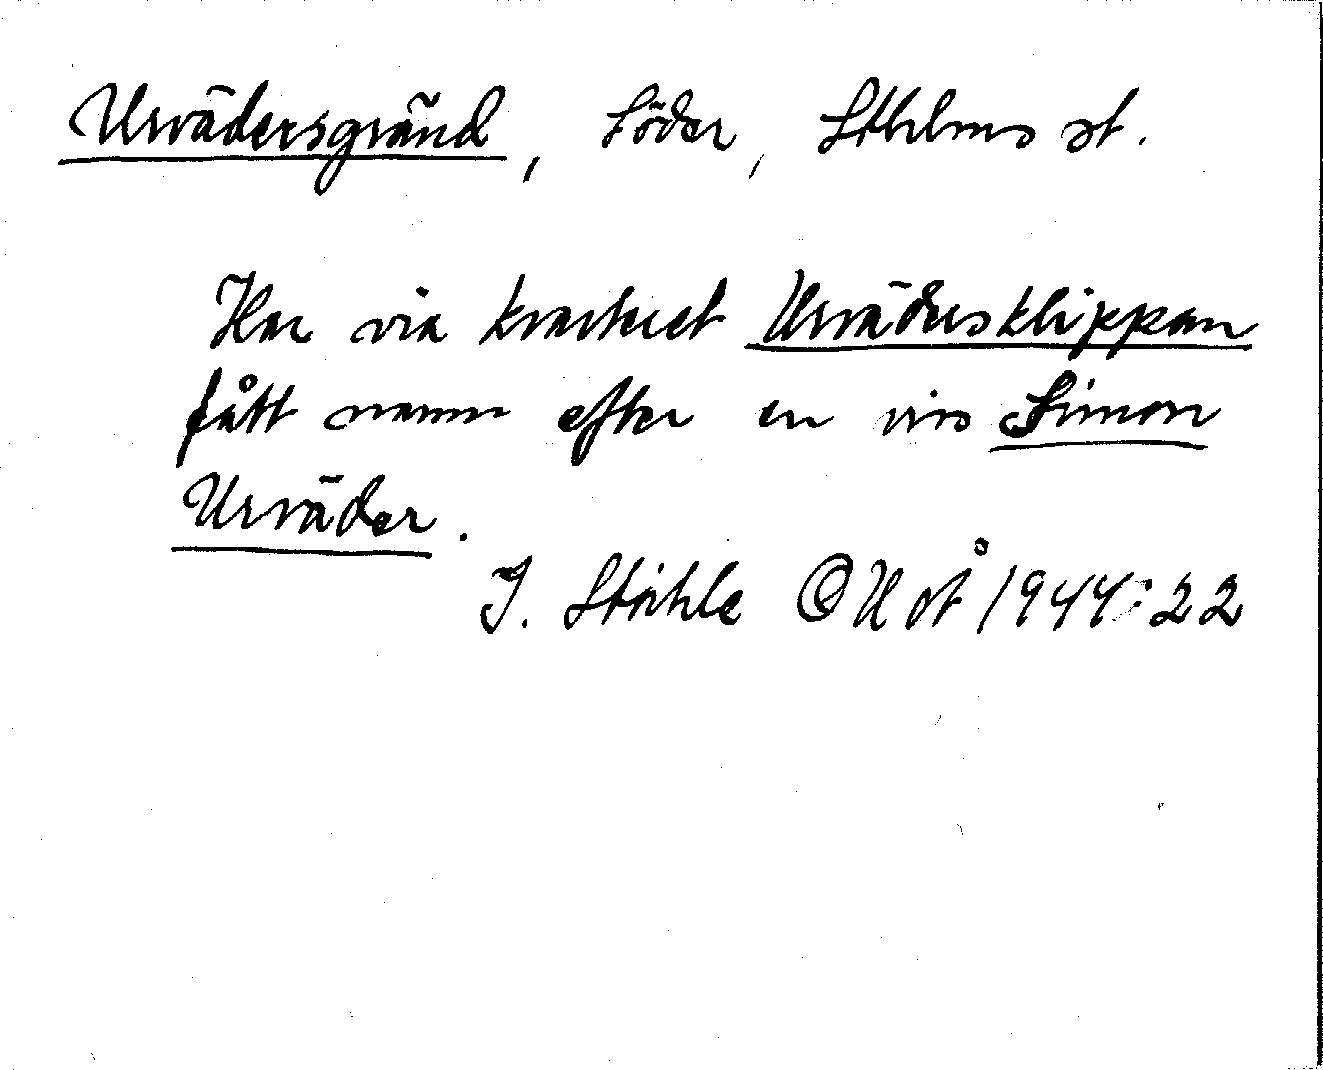 Urvädersgränd, Söder, Sthlms st.
Har via kvarteret Urvädersklippan
fått namn efter en viss Simon
Urväder.
I. Ståhle OUÅ 1944:22